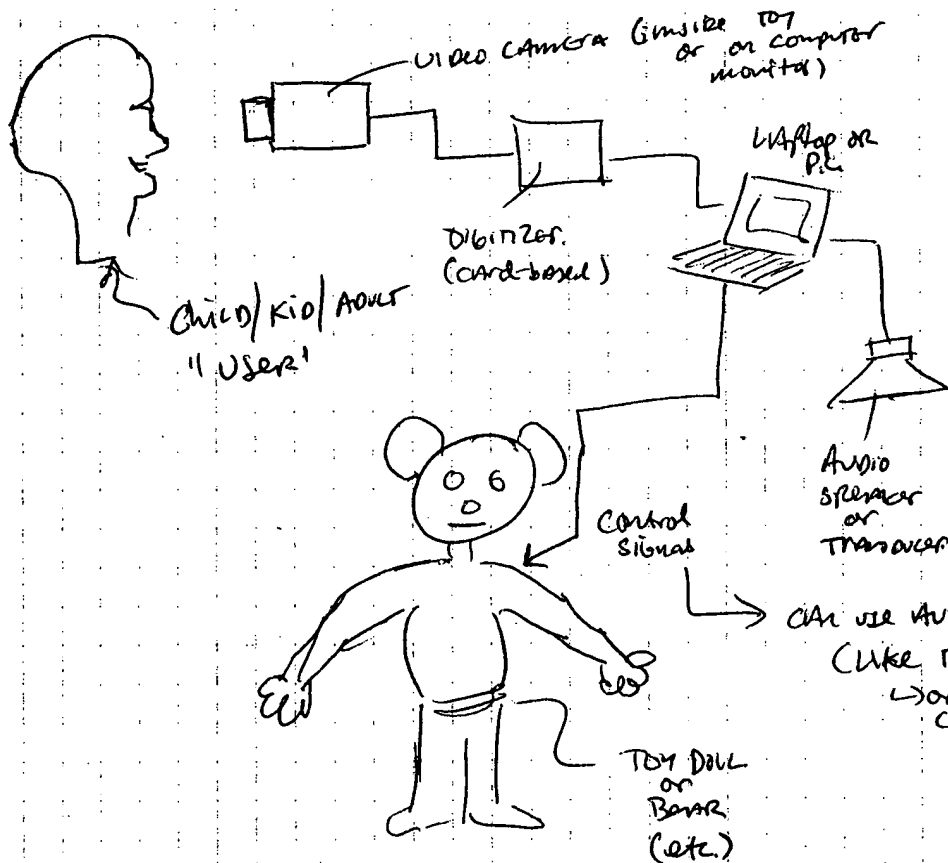 VIDEO CAMERA (inside TOY
or on computer
monitor)
LAPtop or
P.C.
DIGITIZER.
(card-based)
CHILD/KID/ADULT
"USER"
AUDIO
SPEAKER
or
TRANSDUCER
Control
Signal
CAN USE AU
(LIKE
TOY DOLL
or
BEAR
(etc.)